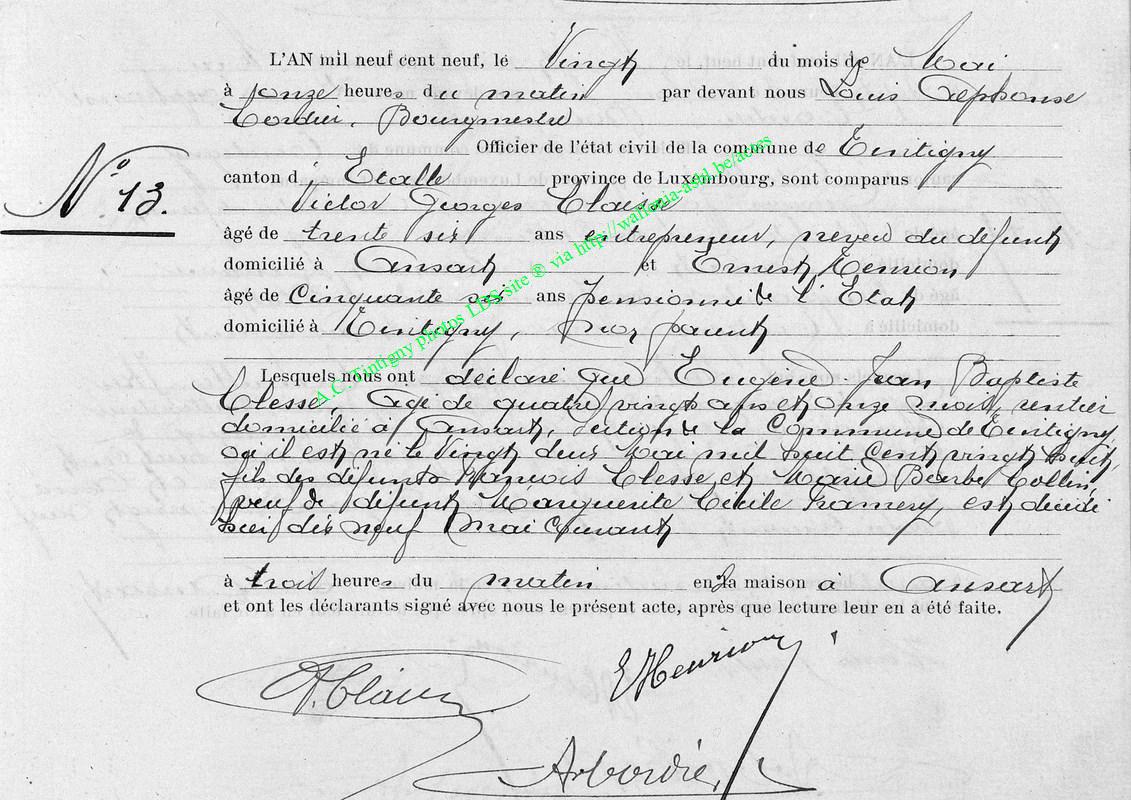 L'AN mil neuf cent neuf, le Vingt du mois de Mai
à onze heures du matin par devant nous Louis Alphonse
Cordier, Bourgmestre
Officier de l'état civil de la commune de Tintigny
canton d' Etalle province de Luxembourg, sont comparus
N° 13.
Victor Georges Claisse
âgé de trente six ans entrepreneur, neveu du défunt
domicilié à Ansart et Ernest Henrion
âgé de Cinquante six ans pensionné de l'Etat
domicilié à Tintigny, Non parent
Lesquels nous ont déclaré que Eugène Jean Baptiste
Clesse, âgé de quatre vingts ans et onze mois, rentier
domicilié à Ansart, section de la Commune de Tintigny,
où il est né le Vingt deux Mai mil huit Cent vingt huit,
fils des défunts François Clesse et Marie Barbe Collin,
veuf de défunte Marguerite Cécile Framery, est décédé
dix neuf Mai Courant
à trois heures du matin en la maison à Ansart
et ont les déclarants signé avec nous le présent acte, après que lecture leur en a été faite.
EHenrion
A.C. Tintigny photos LDS site ® via http://wallonia-asbl.be/actes